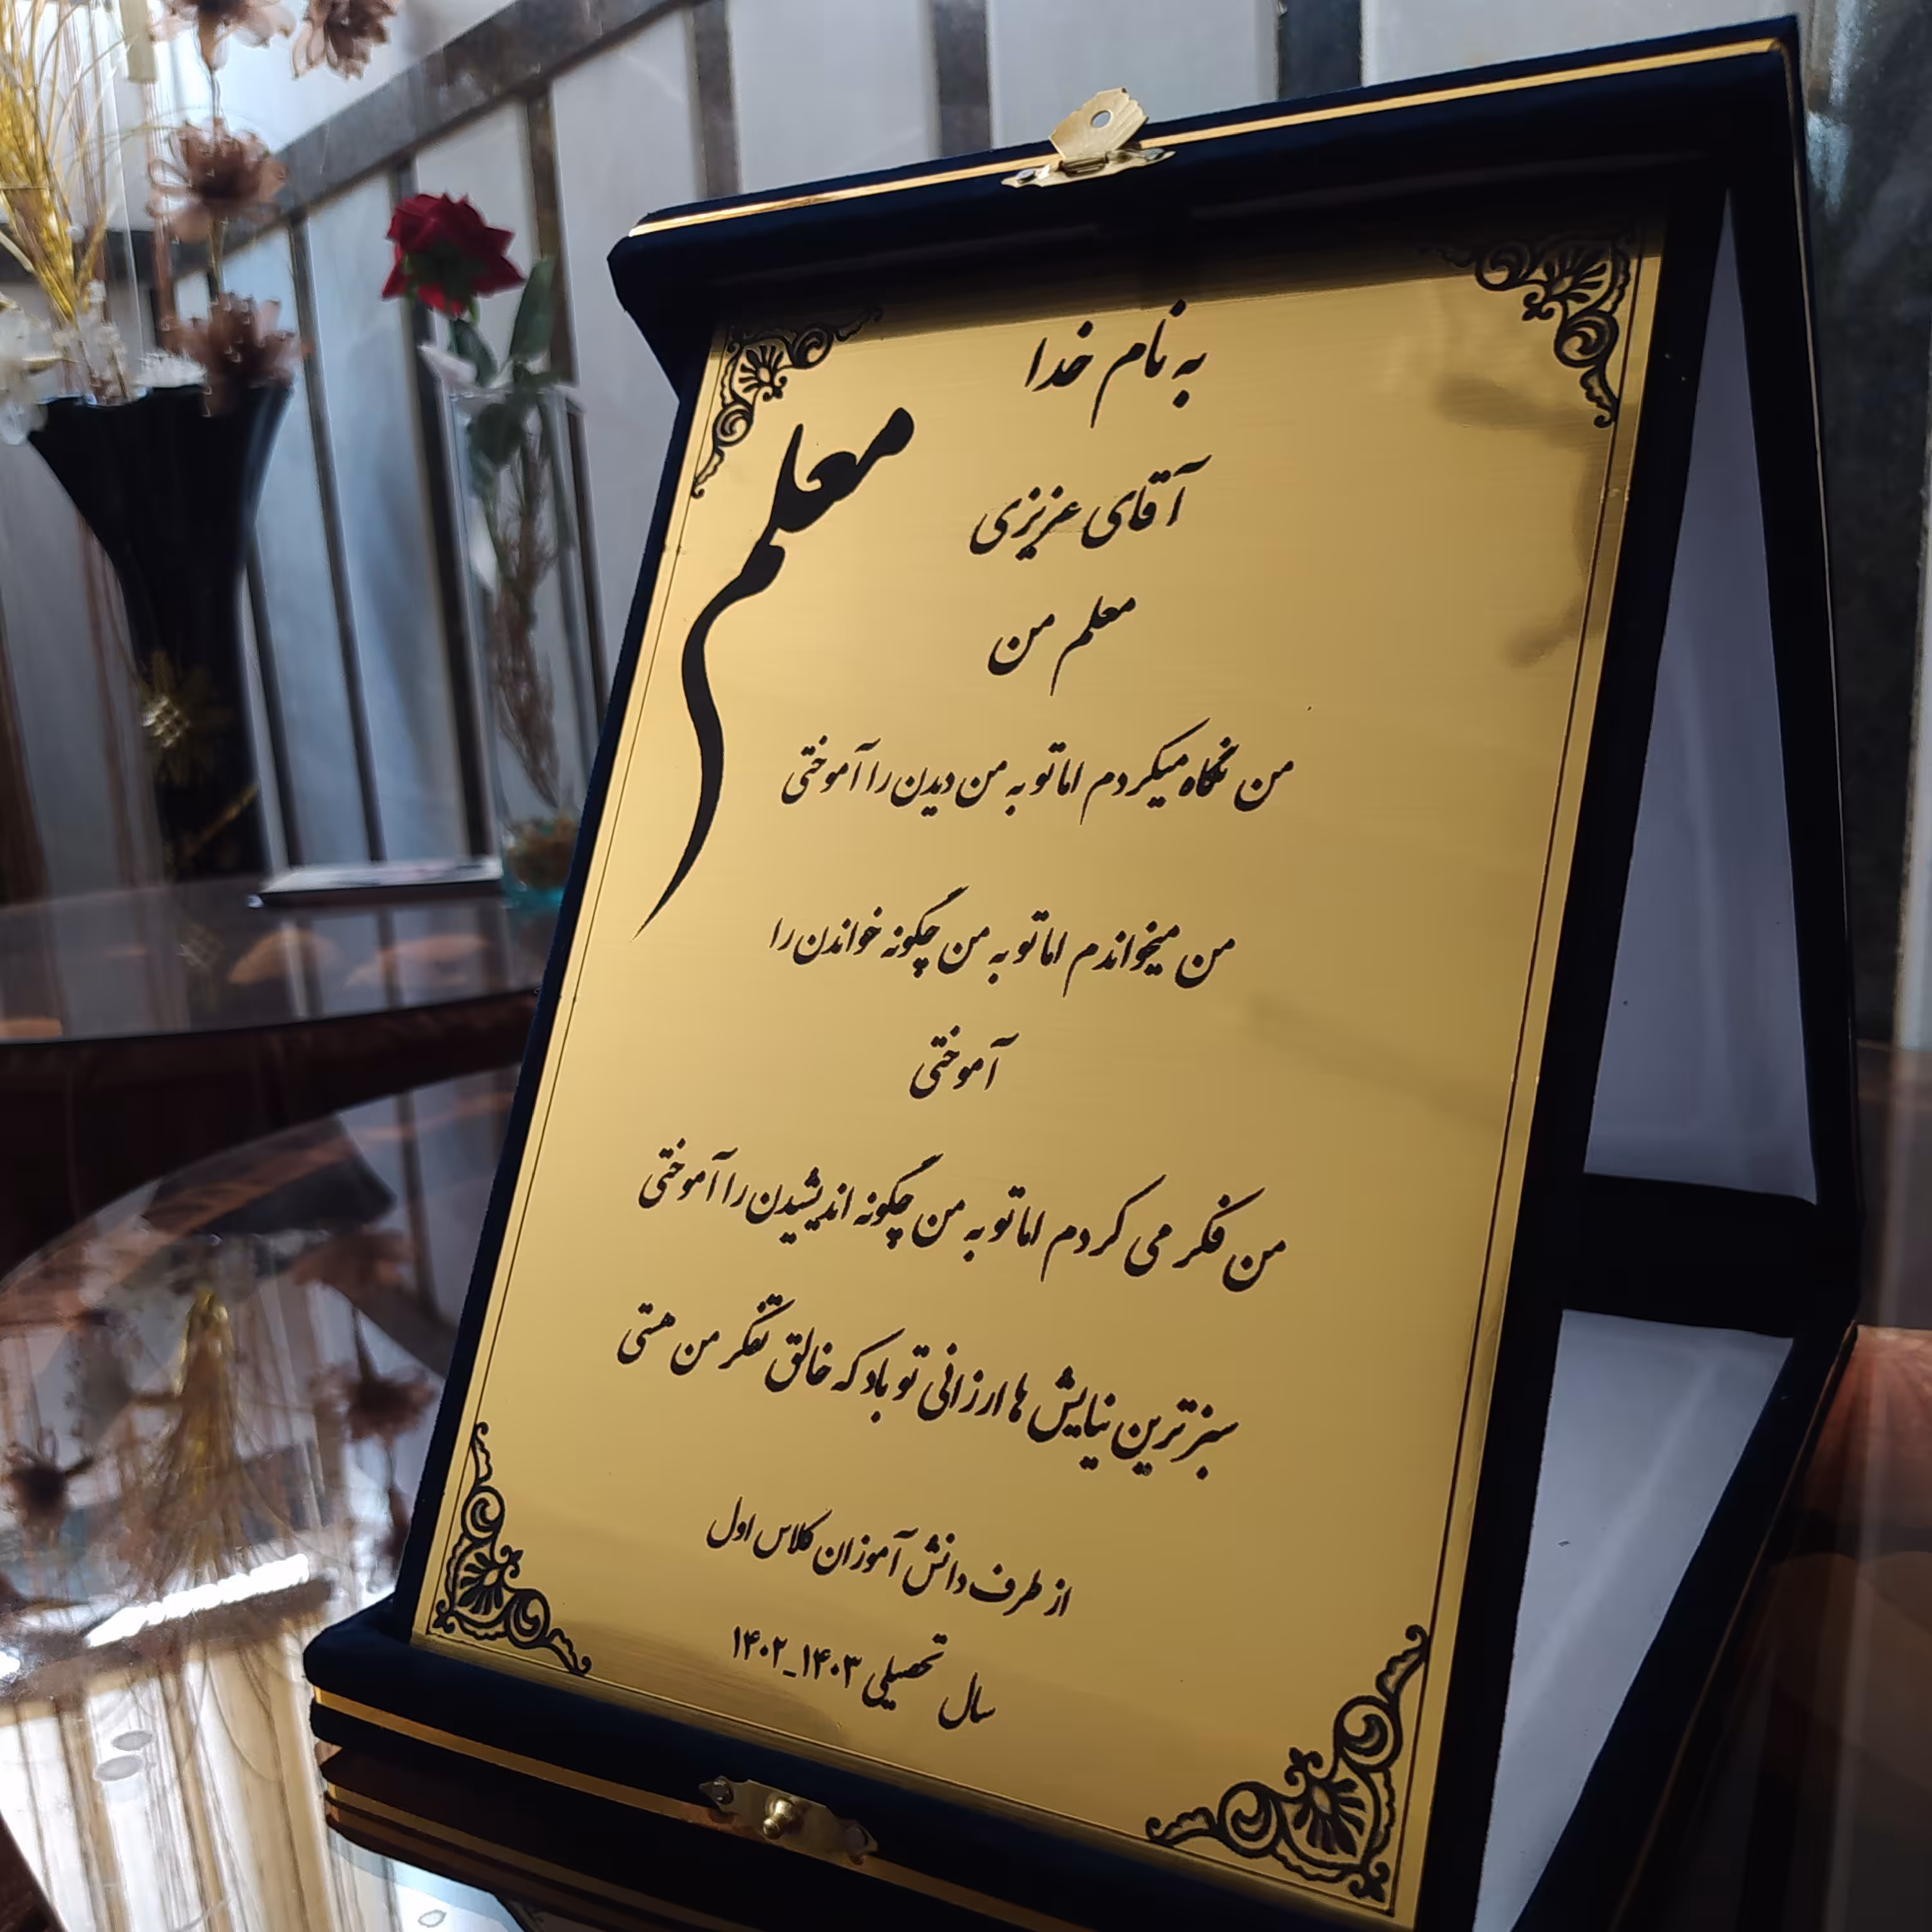 به نام خدا
معلم
آقای عزیزی
معلم من
من نگاه میکردم اما تو به من دیدن را آموختی
من میخواندم اما تو به من چگونه خواندن را
آموختی
من فکر می کردم اما تو به من چگونه اندیشیدن را آموختی
سبزترین نیایش ها ارزانی تو باد که خالق تفکر من هستی
از طرف دانش آموزان کلاس اول
سال تحصیلی ۱۴۰۳_۱۴۰۲